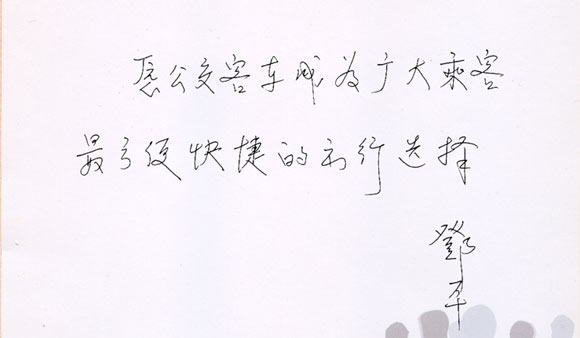 愿公交客车成为广大乘客
最方便快捷的出行选择
鄧平